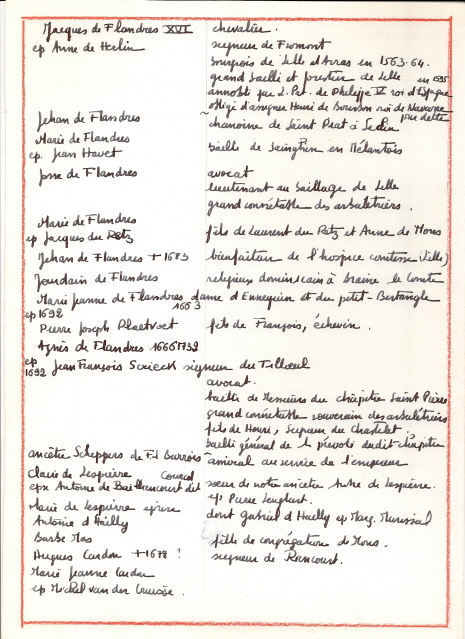 Jacques de Flandres XVI chevalier.
ep Anne de Herlin seigneur de Fromont
bourgeois de Lille et Arras en 1563.64.
grand bailli et forestier de Lille en 1595
annobli par L. Pat. de Philippe IV roi d'Espagne
obligé d'assigner Henri de Bourbon roi de Navarre
pour dette
Jehan de Flandres ~ chanoine de Saint Piat à Seclin
Marie de Flandres
ep. Jean Havet bailli de Sainghin en Mélantois
Josse de Flandres avocat
lieutenant au bailliage de Lille
grand connétable des arbalétriers.
Marie de Flandres
ep Jacques du Retz fils de Laurent du Retz et Anne de Mons
Jehan de Flandres + 1683 bienfaiteur de l'hospice comtesse (Lille)
Jourdain de Flandres religieux dominicain à braine le Comte
Marie Jeanne de Flandres dame d'Ennequin et du petit-Bertangle
ep 1692 1663
Pierre Joseph fils de François, échevin.
Agnès de Flandres 1666/1732
ep 1692 Jean François Scrieck seigneur du Tilloeul
avocat.
bailli de Messieurs du chapitre Saint Pierre
grand connétable souverain des arbalétriers
fils de Henri, Seigneur du Chastelet
bailli général de la prévoté dudit chapitre
ancêtre Scheppers de F.d Burrois ~ amiral au service de l'empereur
Claire de Lespierre Courcol
epx Antoine de Baillencourt dit soeur de notre ancêtre de Lespierre.
Marie de Lespierre épouse ep Pierre
Antoinie d'Hailly dont Gabriel d'Hailly ep Marg.
Barbe Mas fille de congrégation de Mons.
Hugues Cardon + 1678 ? seigneur de Roncourt.
Marie Jeanne Cardon
ep Michel van der Cruisse.